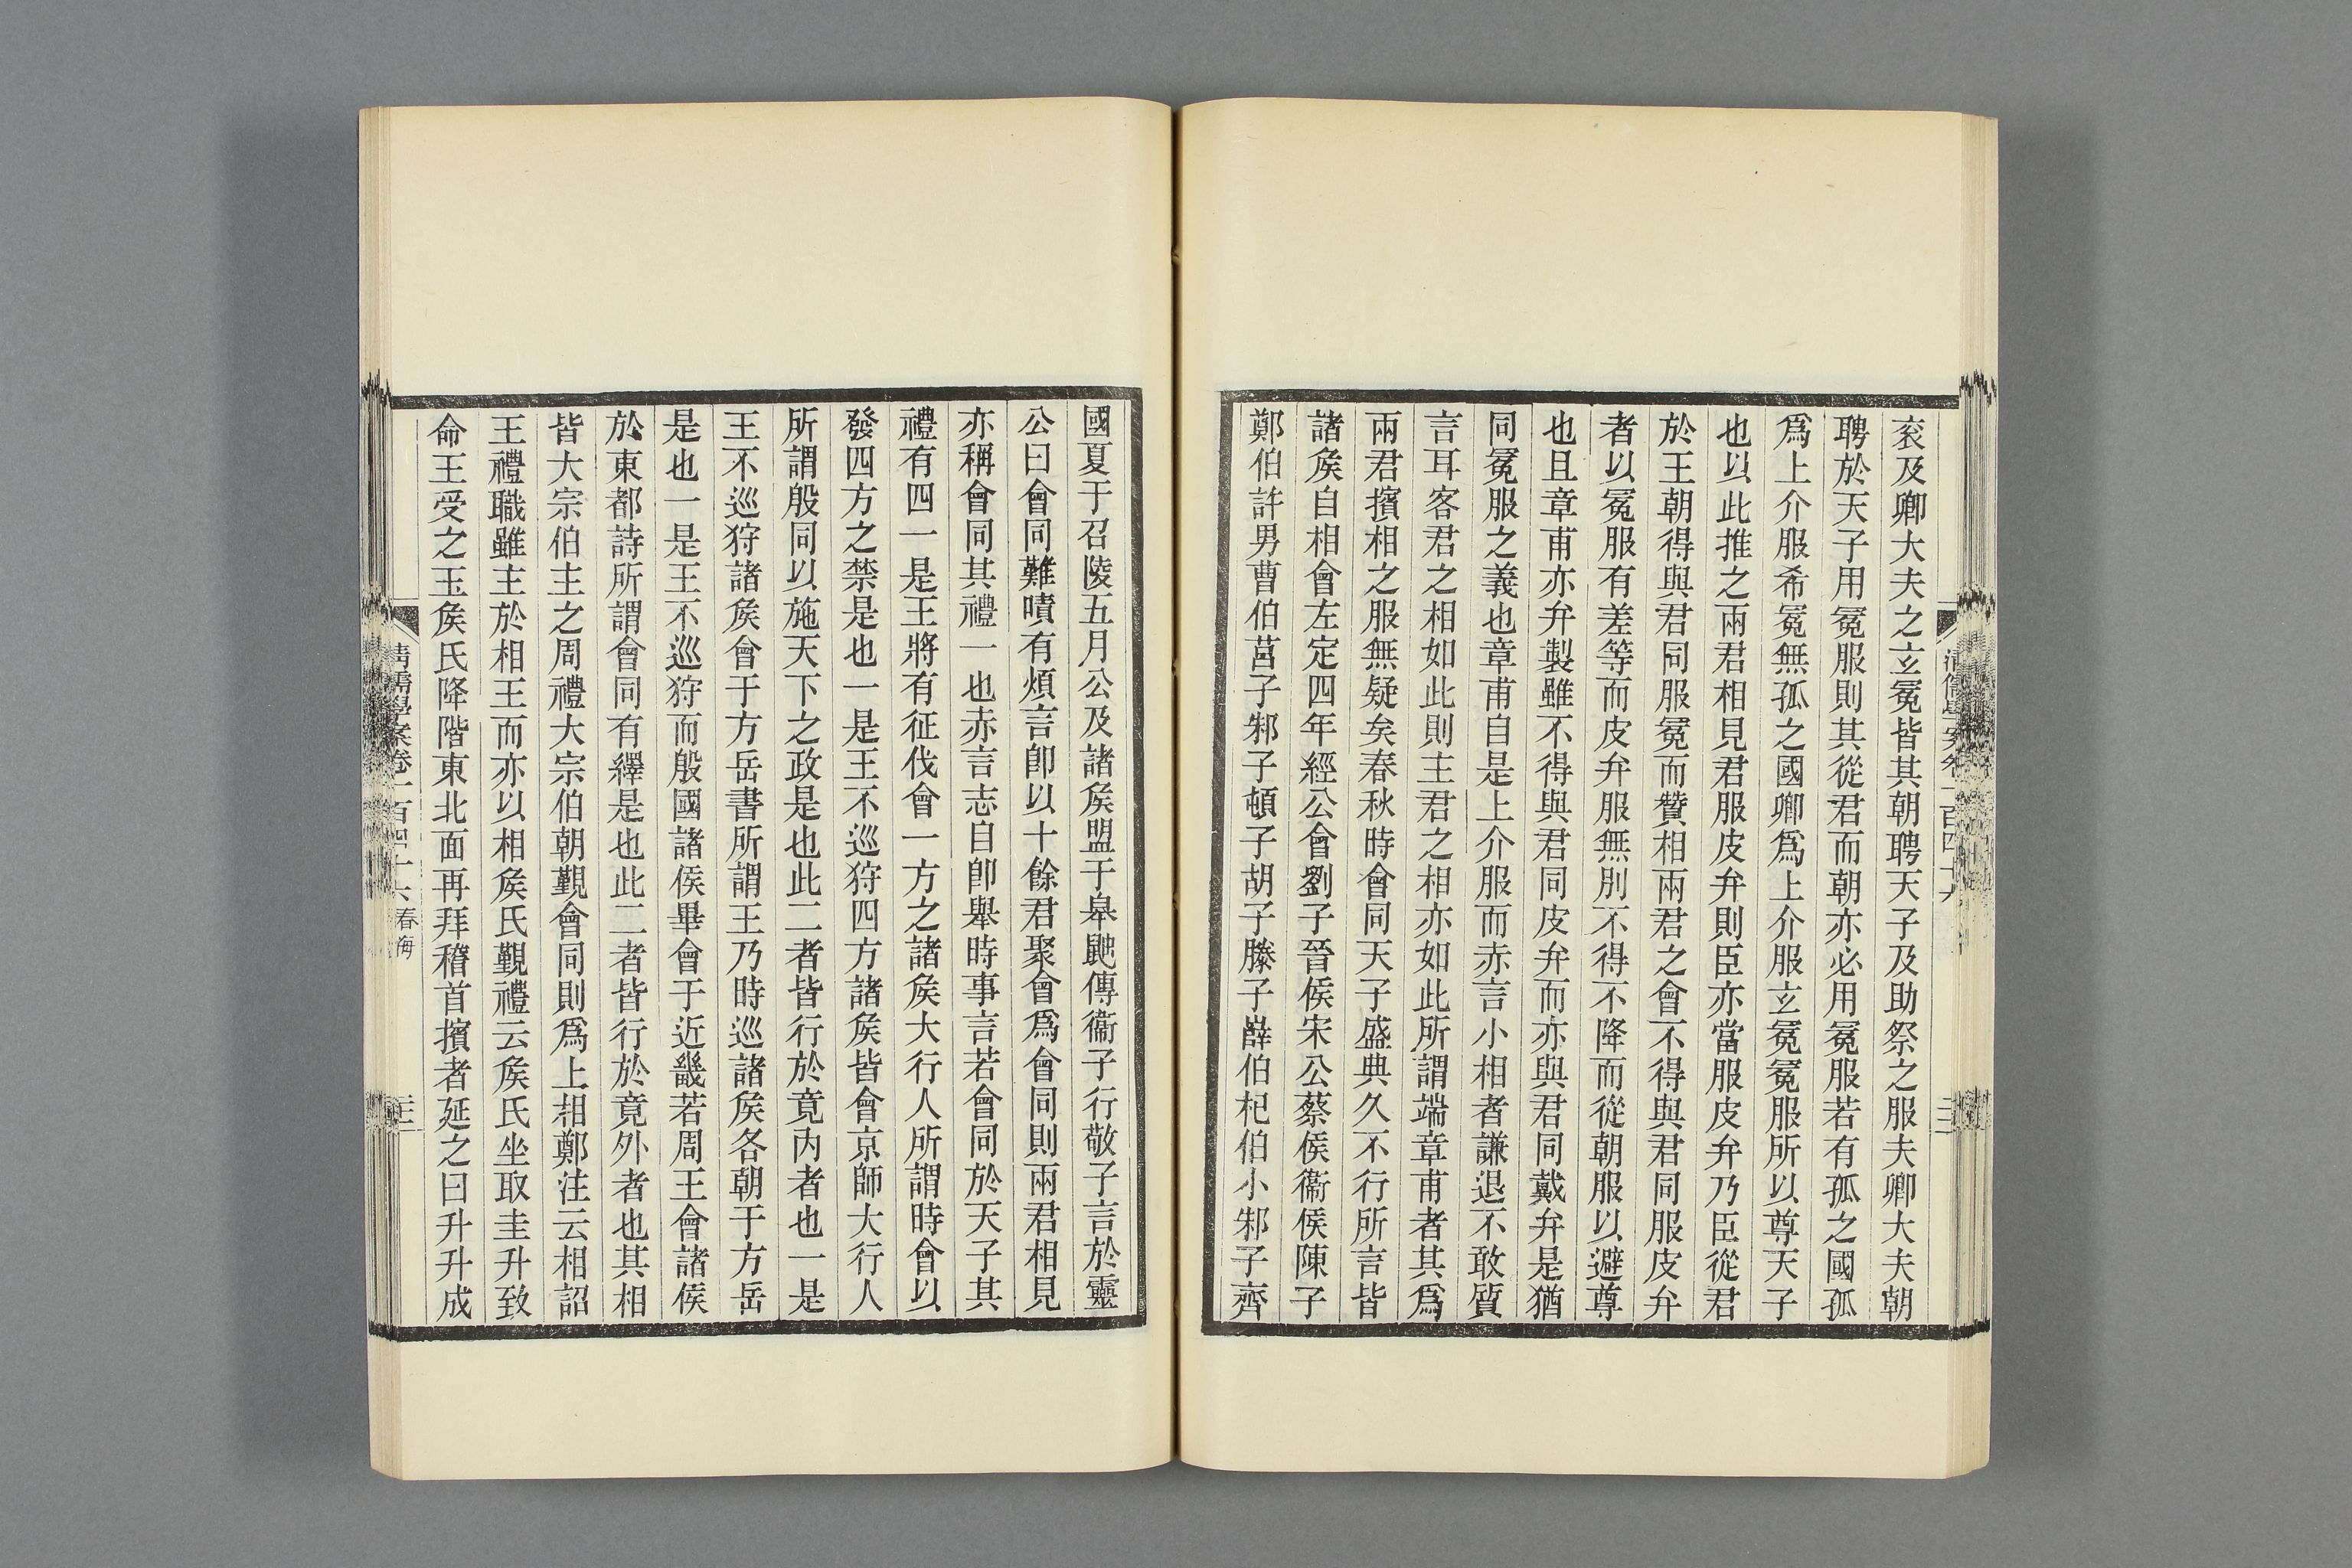 衮及卿大夫之玄冕皆其朝聘天子及助祭之服夫卿大夫朝
聘於天子用冕服則其從君而朝亦必用冕服若有孤之國孤
爲上介服希冕無孤之國卿爲上介服玄冕冕服所以尊天子
也以此推之兩君相見君服皮弁則臣亦當服皮弁乃臣從君
於王朝得與君同服冕而贊相兩君之會不得與君同服皮弁
者以冕服有差等而皮弁服無別不得不降而從朝服以避尊
也且章甫亦弁製雖不得與君同皮弁而亦與君同戴弁是猶
同冕服之義也章甫自是上介服而赤言小相者謙退不敢質
言耳客君之相如此則主君之相亦如此所謂端章甫者其爲
兩君擯相之服無疑矣春秋時會同天子盛典久不行所言皆
諸矦自相會左定四年經公會劉子晉侯宋公蔡侯衞侯陳子
鄭伯許男曹伯莒子邾子頓子胡子滕子薛伯杞伯小邾子齊
國夏于召陵五月公及諸矦盟于皋鼬傳衞子行敬子言於靈
公曰會同難嘖有煩言卽以十餘君聚會爲會同則兩君相見
亦稱會同其禮一也赤言志自卽舉時事言若會同於天子其
禮有四一是王將有征伐會一方之諸矦大行人所謂時會以
發四方之禁是也一是王不巡狩四方諸矦皆會京師大行人
所謂殷同以施天下之政是也此二者皆行於竟内者也一是
王不巡狩諸矦會于方岳書所謂王乃時巡諸矦各朝于方岳
是也一是王不巡狩而殷國諸侯畢會于近畿若周王會諸侯
於東都詩所謂會同有繹是也此二者皆行於竟外者也其相
皆大宗伯主之周禮大宗伯朝覲會同則爲上相鄭注云相詔
王禮職雖主於相王而亦以相矦氏覲禮云矦氏坐取圭升致
命王受之玉矦氏降階東北面再拜稽首擯者延之曰升升成
清儒學案卷一百四十六 春海
三